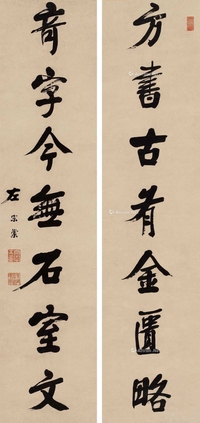 方書古有金匱略
奇字今無石室文
左宗棠